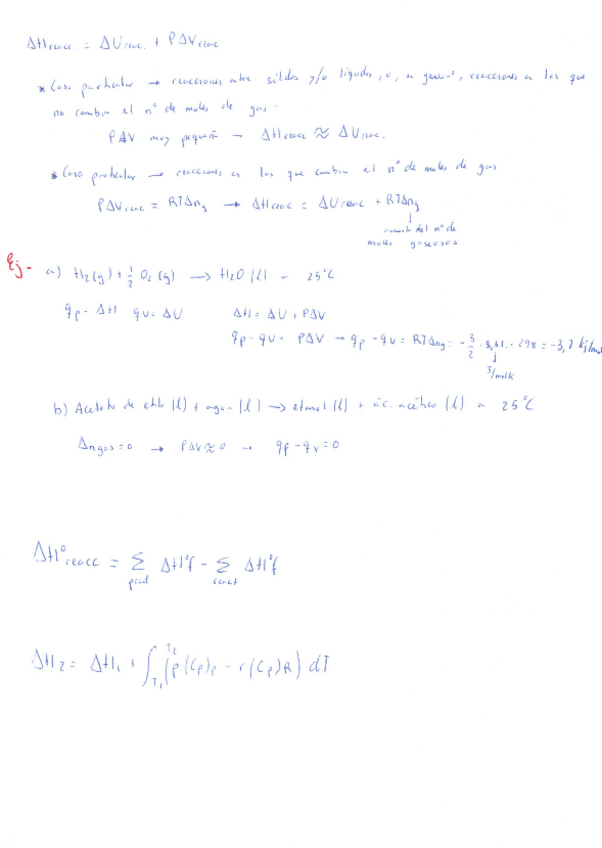 ΔHreacc. = ΔUreac. + PΔVreac
* Caso particular → reacciones entre sólidos y/o líquidos, o, en general, reacciones en las que
no cambia el nº de moles de gas:
PΔV muy pequeño → ΔHreacc ≈ ΔUreac.
* Caso particular → reacciones en las que cambia el nº de moles de gas
PΔVreac = RTΔng → ΔHreacc = ΔUreac + RTΔng
del nº de
moles gaseosos
Ej- a) H2(g) + 1/2 O2(g) → H2O(l) a 25°C
qp = ΔH qv = ΔU ΔH = ΔU + PΔV
qp - qv = PΔV → qp - qv = RTΔng = -3/2 · 8,31 · 298 = -3,7 kJ/mol
J/molK
b) Acetato de etilo (l) + agua (l) → etanol (l) + ác. acético (l) a 25°C
Δngas = 0 → PΔV ≈ 0 → qp - qv = 0
ΔH°reacc = Σ ΔH°f - Σ ΔH°f
prod react
ΔH2 = ΔH1 + ∫T1T2 (p(Cp)P - r(Cp)R) dT